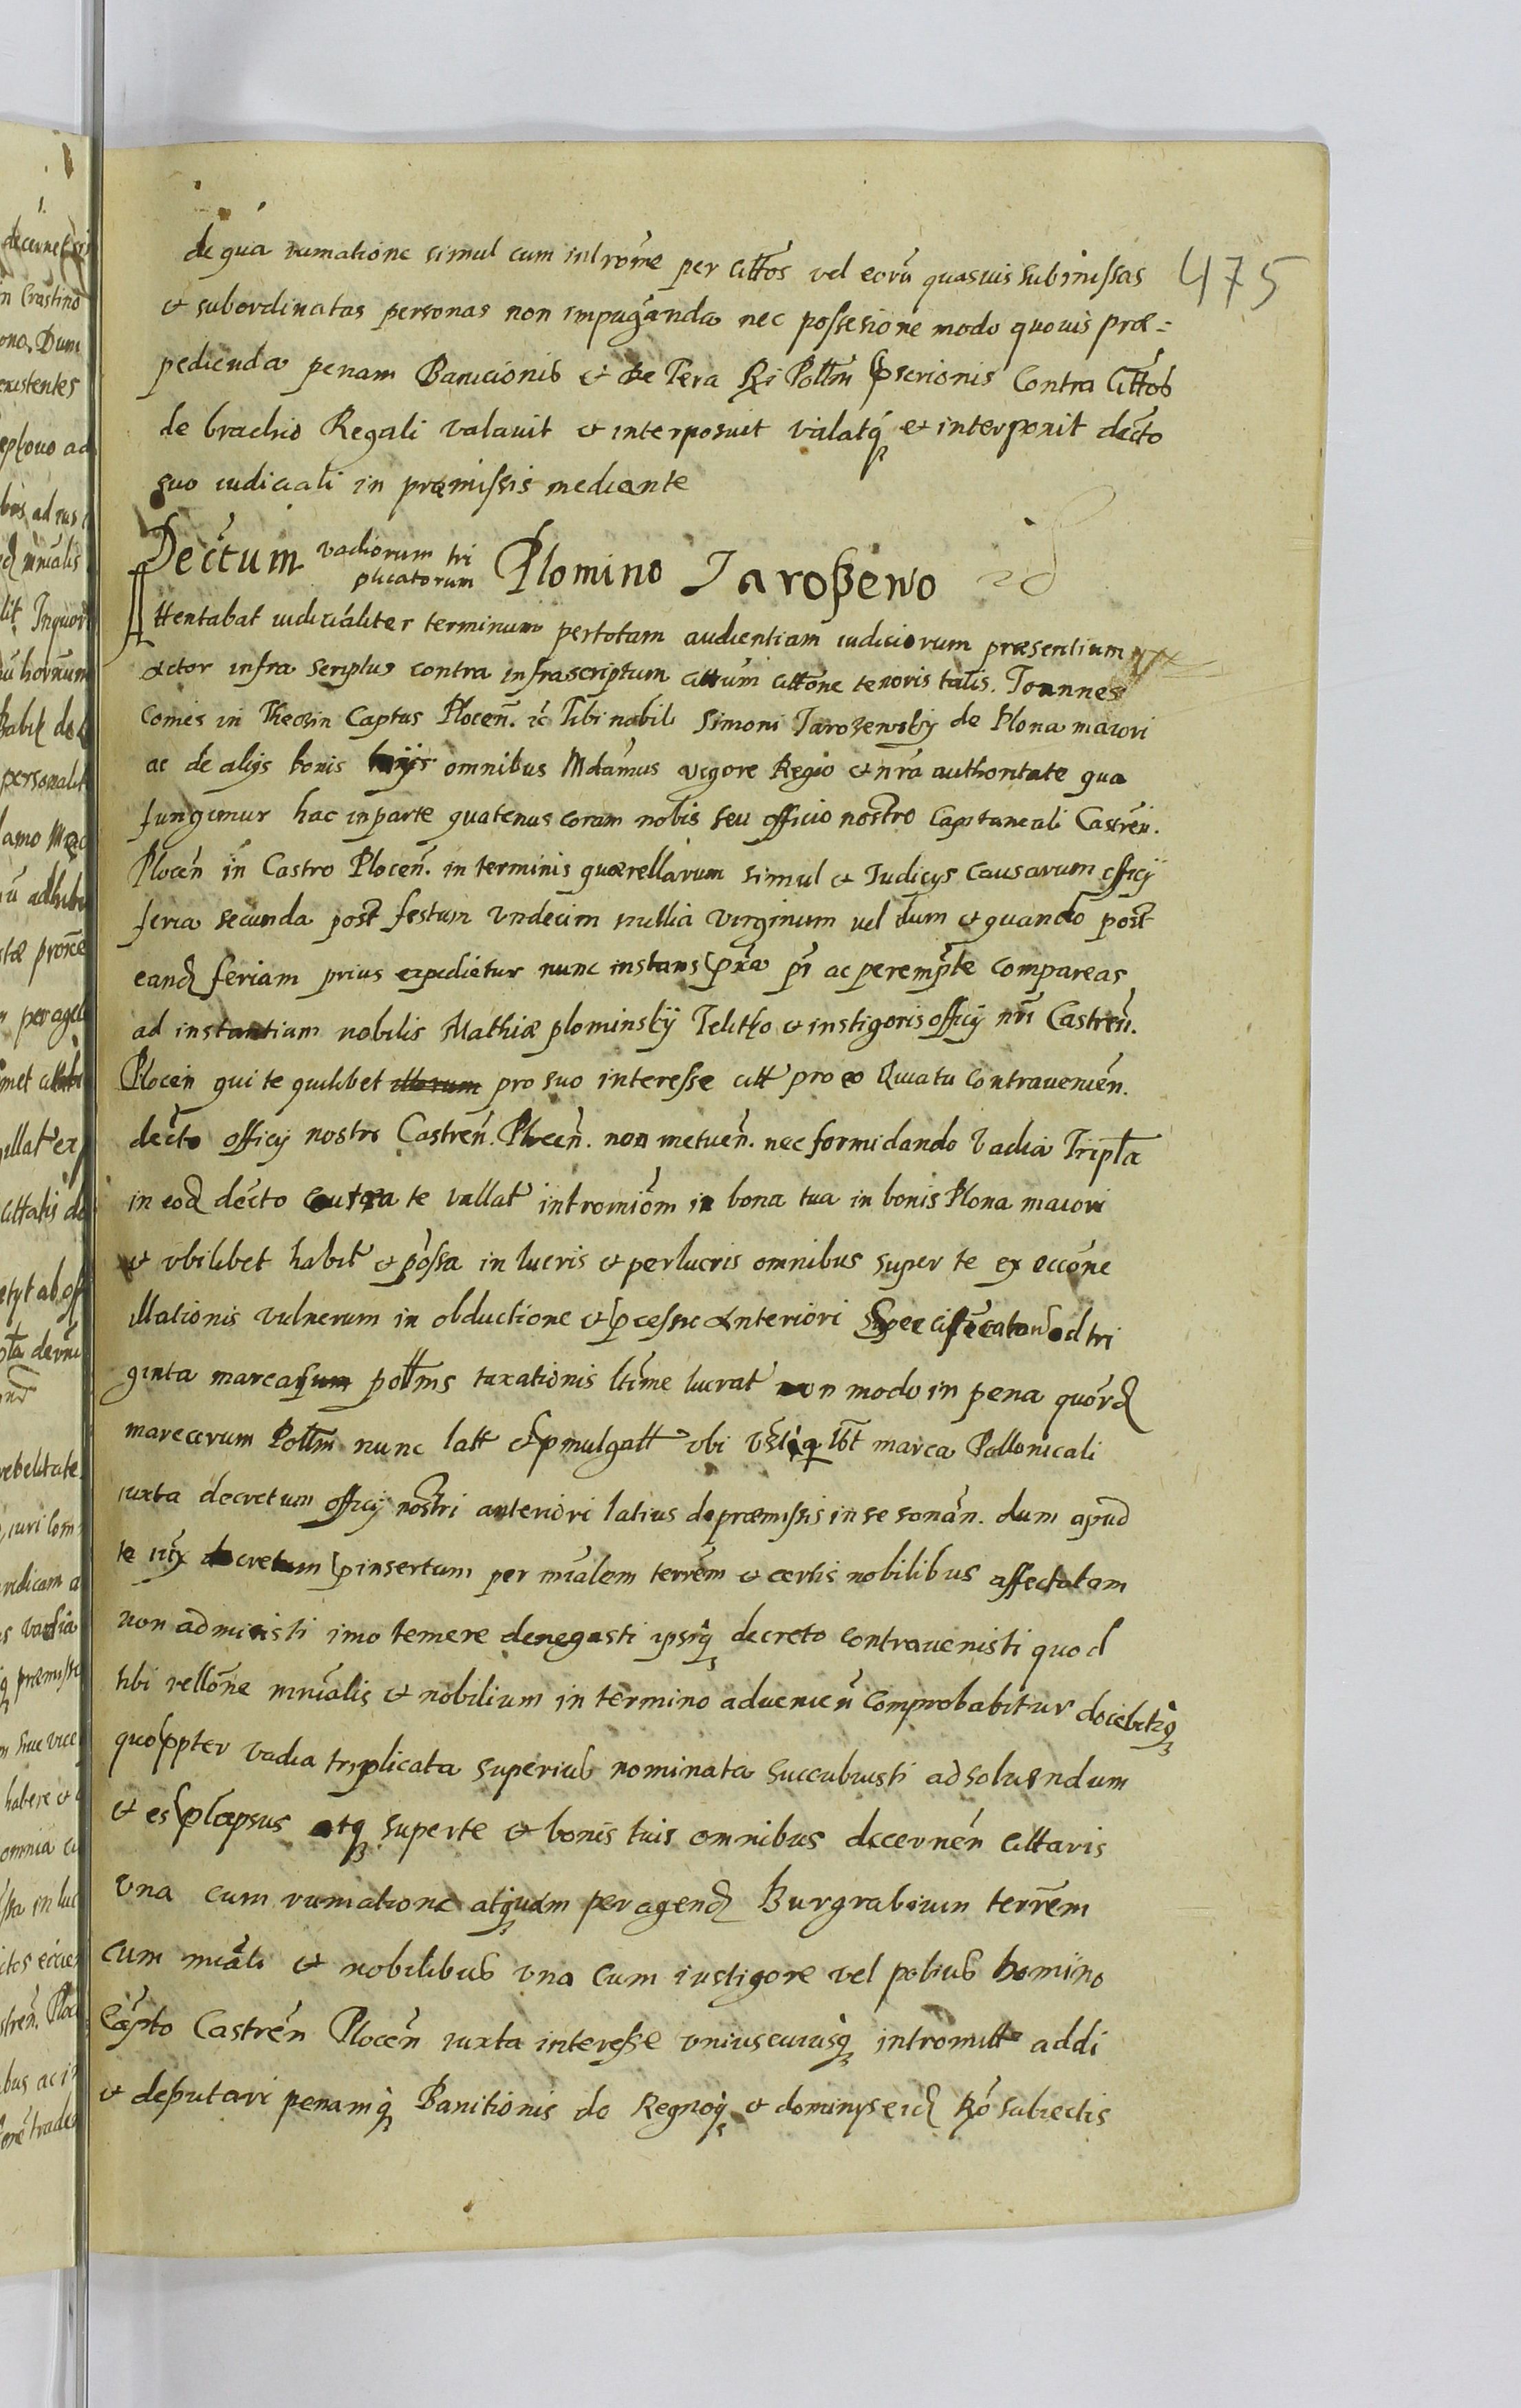 de qua rumatione simul cum introme per cittos vel eoru quasuis subinissas
475
et subordinatas personas non impuganda nec possesione modo quouis præ=
pedienda penam Banicionis et de Tera Ri Pollm pscrionis Contra Cittos
de brachio Regali valavit et interposuit valatq et interponit decto
suo iudiciali in præmissis mediante
Dectum vadiorum tri
plicatorum Plomino Jaroßewo
Attentabat iudicialiter terminum pertotam audientiam iudiciorum præsentium
Actor infra scriptus contra infrascriptum cittum cittone tenoris talis. Joannes
Comes in Captus Plocen. Tibi nobili Simoni Jarozewsky de Plona maiori
ac de alijs bonis omnibus Mdamus vigore Regio et nra authoritate qua
fungimur hac inparte quatenus coram nobis seu officio nostro Capitaneali Castren.
Plocen in Castro Plocen. in terminis quærellarum simul et Judicys causarum officij
feria secunda post festum vndecim millia virginum vel dum et quando post
eand feriam prius expedietur nunc instans pxa pr ac perempte compareas
ad instantiam nobilis Mathiæ plominsky Jelitko et instigoris officij nri Castren.
Plocen qui te quilibet illorum pro suo interesse citt pro eo Quiatu contravenien.
decto officij nostro Castren. Plocen. non metuen. nec formidando Vadia Tripta
in eod decto contra te vallat intromiom in bona tua in bonis Plona maiori
et vbilibet habit et possa in lucris et perlucris omnibus super te ex eccone
illationis vulnerum in obductione et pcessu Anteriori ad tri
ginta marcasum pollms taxationis ltime lucrat non modo in pena quord
marcarum Pollm nunc latt et pmulgatt vbi marca Pollonicali
iuxta decretum officij nostri anteriori latius depræmissis in se sonan. dum apud
te iux decretum pinsertum per mialem terrem et certis nobilibus affectatam
non admisisti imo temere denegasti ipsiq decreto contravenisti quod
tibi rellone mnialis et nobilium in termino advenien Comprobabitur docebitq
quoppter vadia triplicata superius nominata succubuisti ad soluendum
et es plapsus atq superte et bonis tuis omnibus decernen cittaris
Vna cum rumatione atquam peragend Burgrabium terrem
cum miali et nobilibus vna cum instigore vel potius homino
Capto Castren Plocen iuxta interesse vniuscuiusq intromitt addi
et deputari penamq Banitionis de Regnoq et dominys eid Ro subiectis